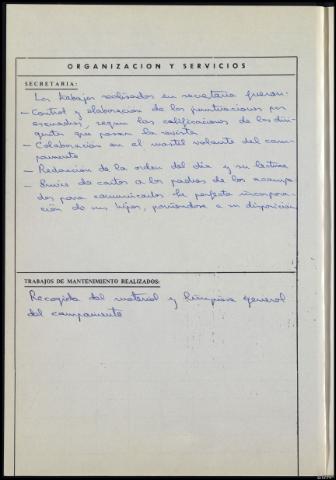 ORGANIZACION Y SERVICIOS
SECRETARIA:
Los trabajos realizados en secretaria fueron:
- Control y elaboracion de las puntuaciones por
escuadras, segun las calificaciones de los diri-
gentes que pasan la revista
- Colaboracion en el mastil volante del cam-
pamento
- Redaccion de la orden del dia y su lectura
- Envios de cartas a los padres de los acampa-
dos para comunicarles la perfecta incorpora-
ción de sus hijos, poniendose a su disposicion
TRABAJOS DE MANTENIMIENTO REALIZADOS:
Recogida del material y limpieza general
del campamento